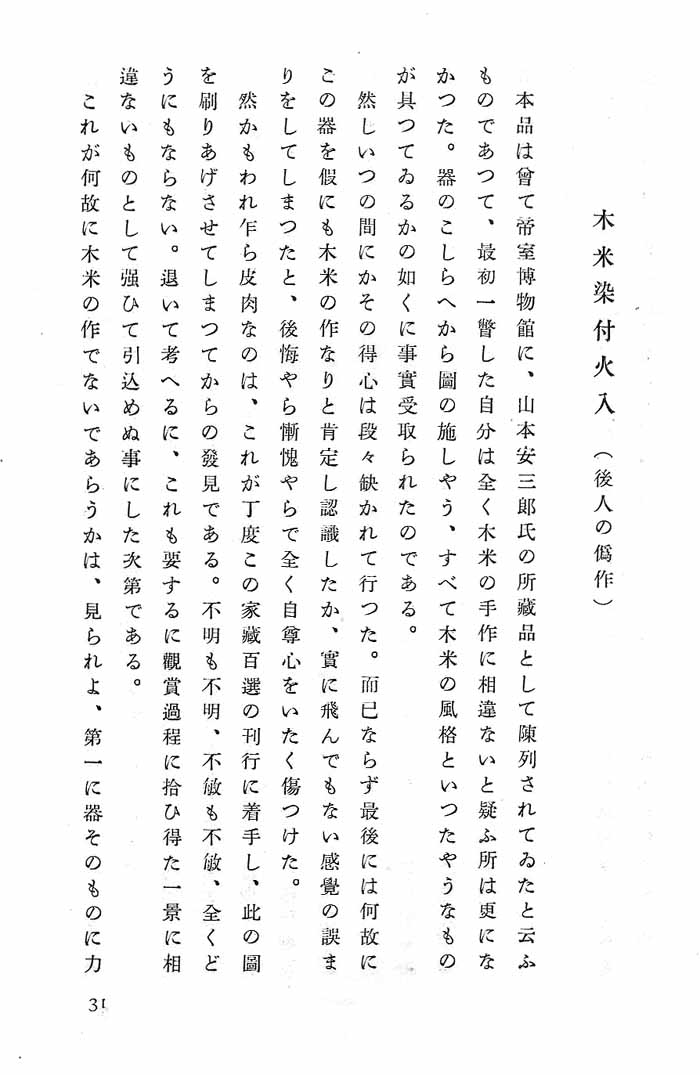 木米染付火入（後人の僞作）
本品は曾て帝室博物館に、山本安三郎氏の所藏品として陳列されてゐたと云ふ
ものであつて、最初一瞥した自分は全く木米の手作に相違ないと疑ふ所は更にな
かつた。器のこしらへから圖の施しやう、すべて木米の風格といつたやうなもの
が具つてゐるかの如くに事實受取られたのである。
然しいつの間にかその得心は段々缺かれて行つた。而已ならず最後には何故に
この器を假にも木米の作なりと肯定し認識したか、實に飛んでもない感覺の誤ま
りをしてしまつたと、後悔やら慚愧やらで全く自尊心をいたく傷つけた。
然かもわれ乍ら皮肉なのは、これが丁度この家藏百選の刊行に着手し、此の圖
を刷りあげさせてしまつてからの發見である。不明も不明、不敏も不敏、全くど
うにもならない。退いて考へるに、これも要するに觀賞過程に拾ひ得た一景に相
違ないものとして强ひて引込めぬ事にした次第である。
これが何故に木米の作でないであらうかは、見られよ、第一に器そのものに力
31